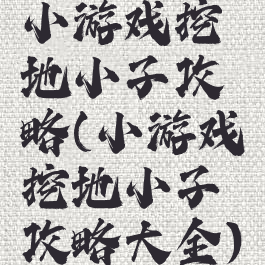 小游戏挖
地小子攻
略(小游戏
挖地小子
攻略大全)